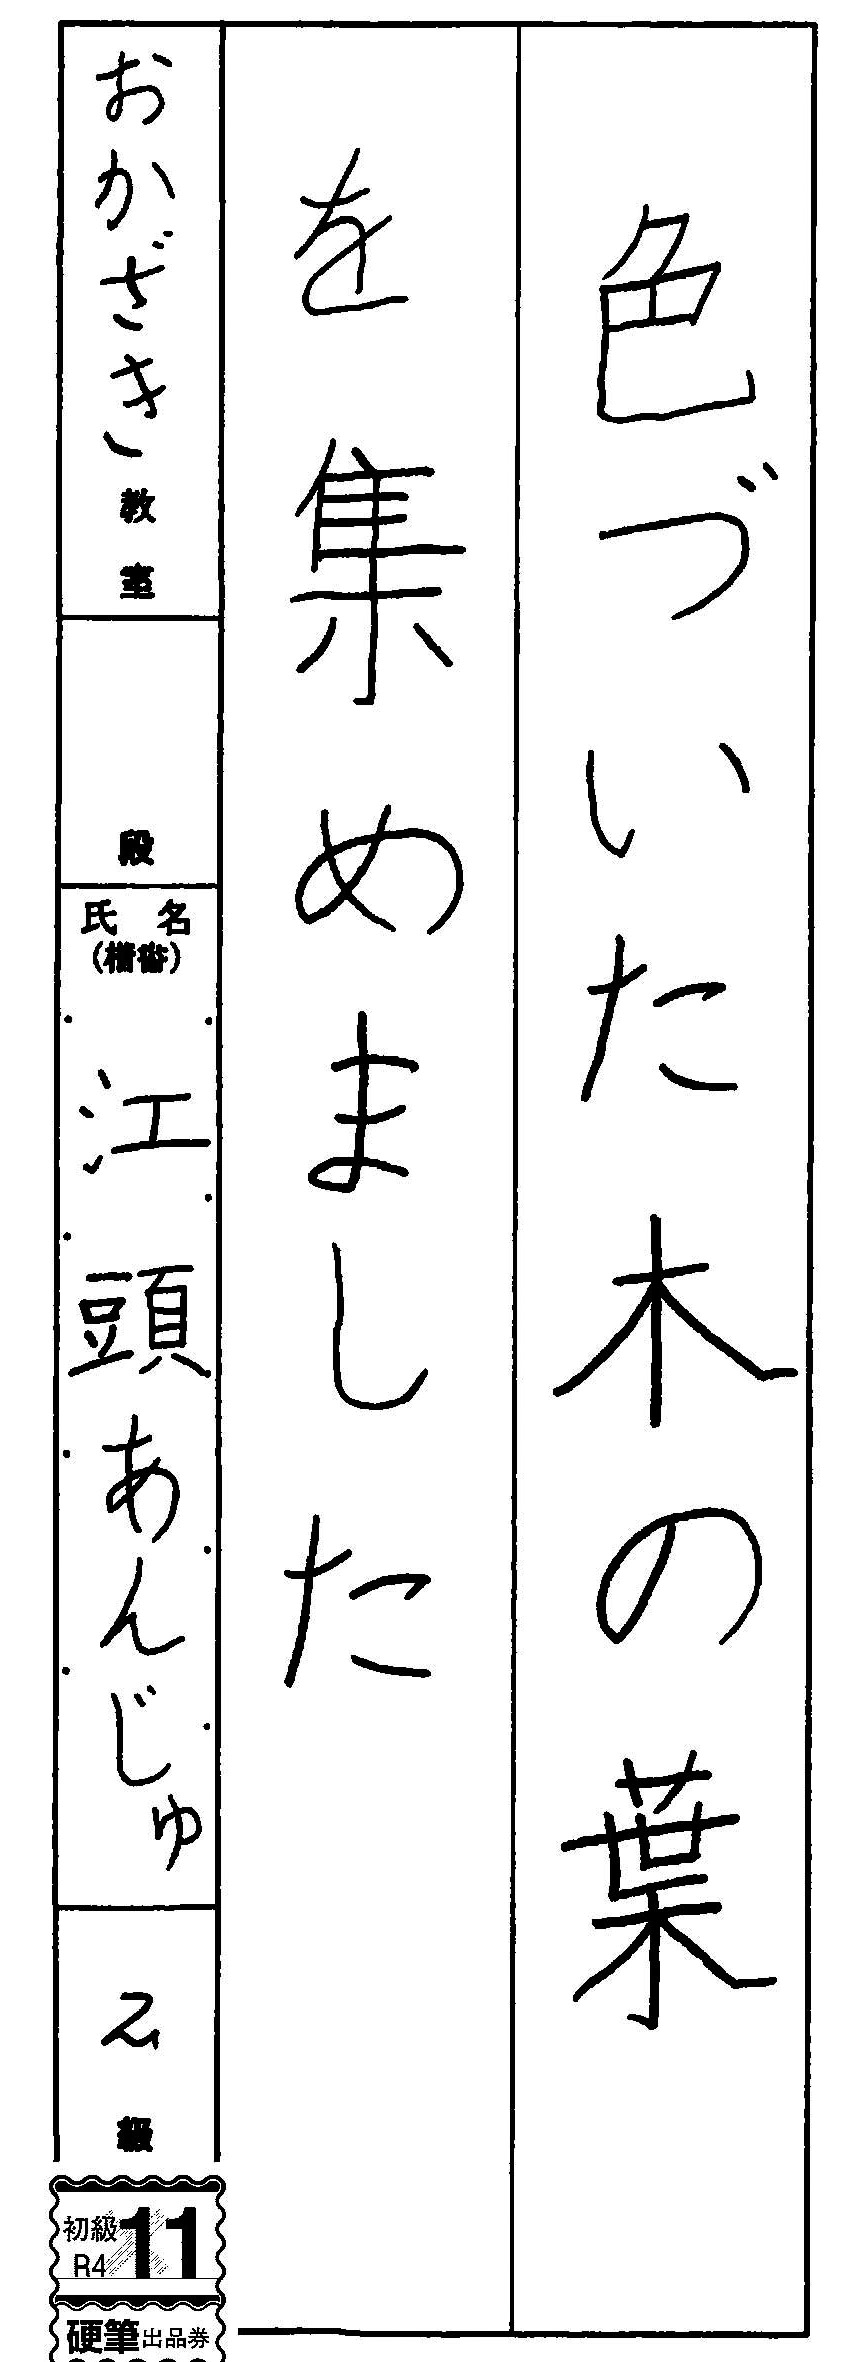 色づいた木の葉
を集めました
おかざき教室
段
氏名
(楷書)
江頭あんじゅ
2級
初級
R4
11
硬筆出品券